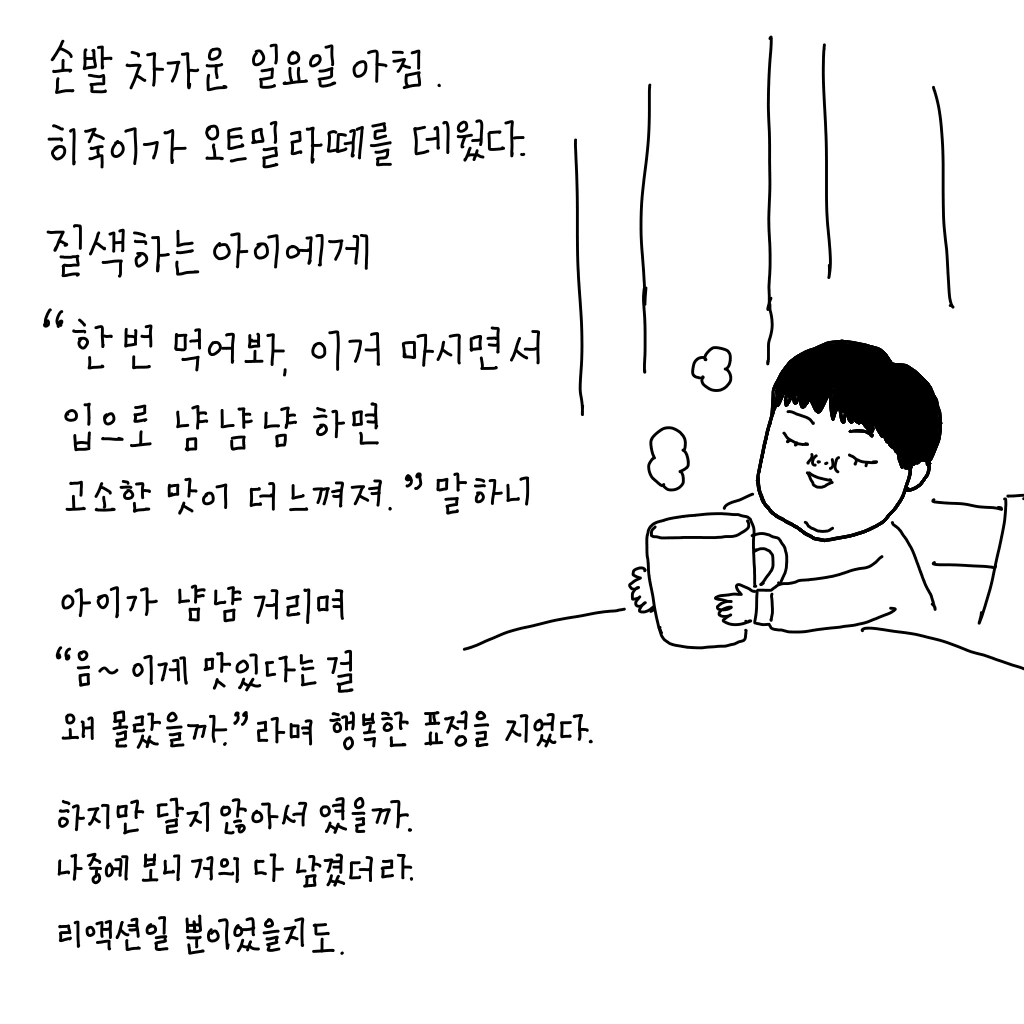 손발 차가운 일요일 아침.
히죽이가 오트밀라떼를 데웠다.
질색하는 아이에게
“한번 먹어봐, 이거 마시면서
입으로 냠냠냠 하면
고소한 맛이 더 느껴져.” 말하니
아이가 냠냠 거리며
“음~ 이게 맛있다는 걸
왜 몰랐을까.”라며 행복한 표정을 지었다.
하지만 달지 않아서 였을까.
나중에 보니 거의 다 남겼더라.
리액션일 뿐이었을지도.